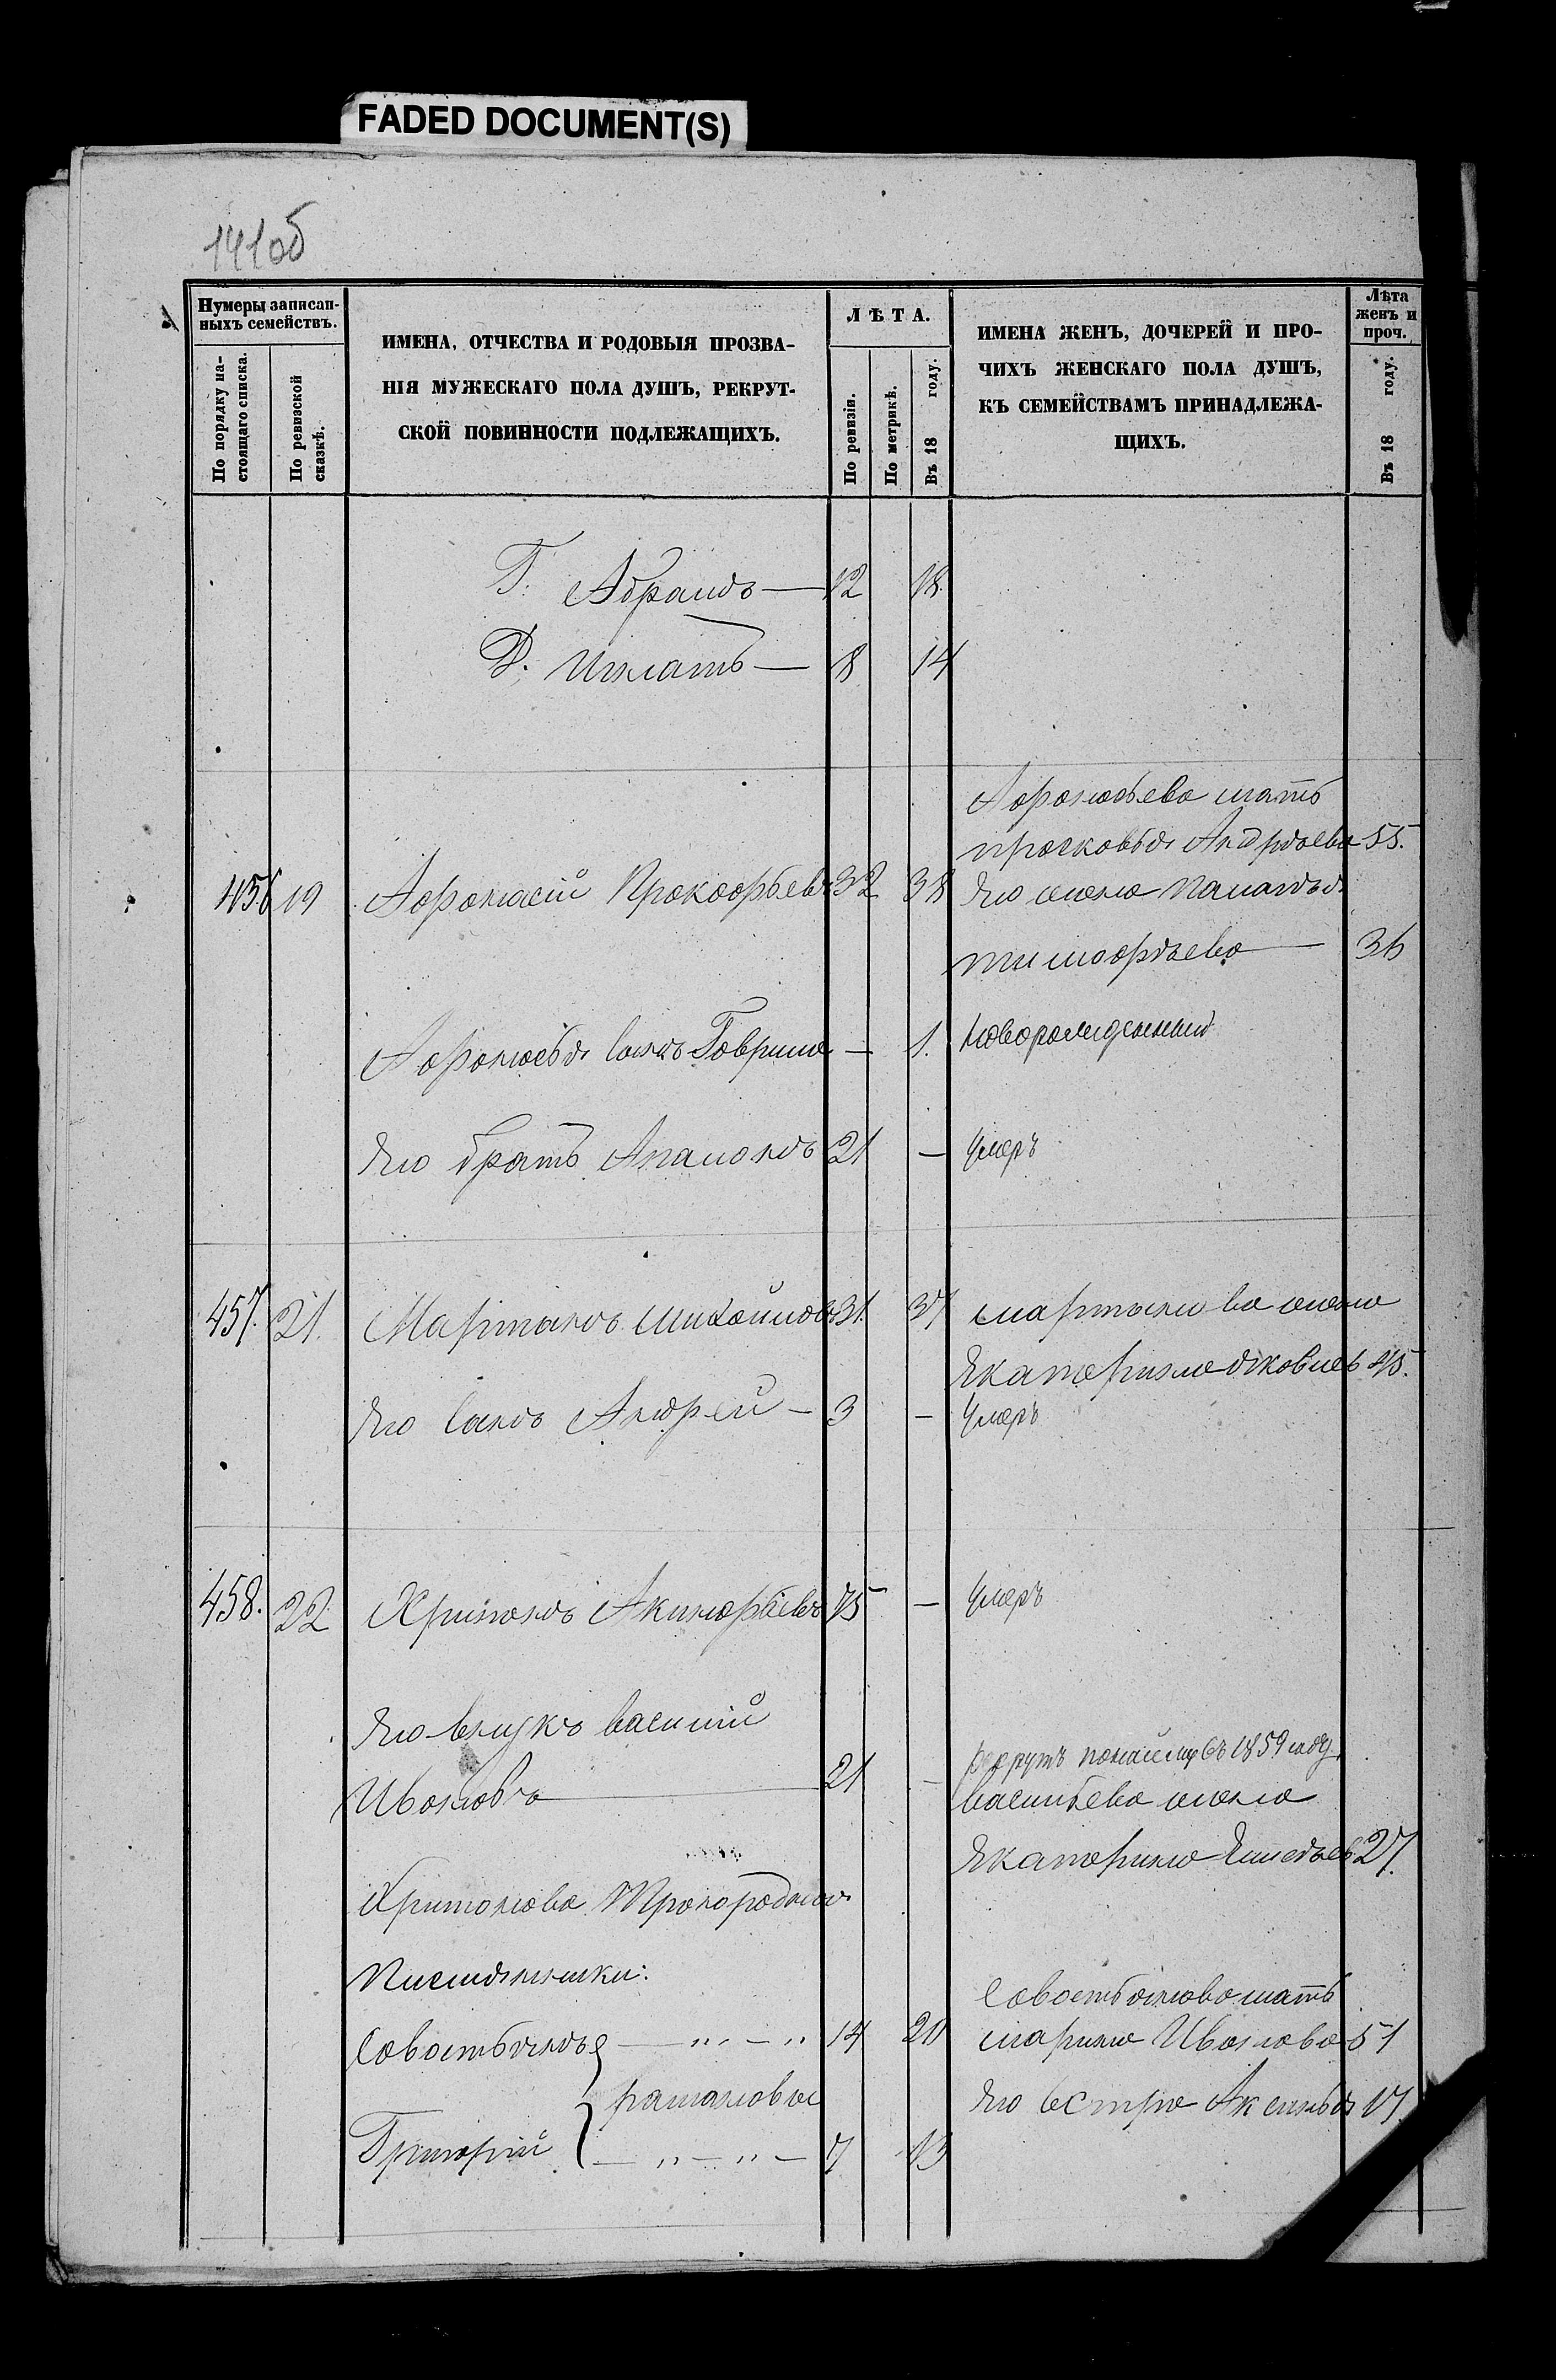 FADED DOCUMENT(S)
141об
Нумеры записан-
ныхъ семействъ.
По порядку на-
стоящаго списка.
По ревизской
сказкѣ.
ИМЕНА, ОТЧЕСТВА И РОДОВЫЯ ПРОЗВА-
НІЯ МУЖЕСКАГО ПОЛА ДУШЪ, РЕКРУТ-
СКОЙ ПОВИННОСТИ ПОДЛЕЖАЩИХЪ.
ЛѢТА.
По ревизіи.
По метрикѣ.
Въ 18 году.
ИМЕНА ЖЕНЪ, ДОЧЕРЕЙ И ПРО-
ЧИХЪ ЖЕНСКАГО ПОЛА ДУШЪ,
КЪ СЕМЕЙСТВАМЪ ПРИНАДЛЕЖА-
ЩИХЪ.
Лѣта
женъ и
проч.
Въ 18 году.
Г. Абрамъ — 12 18.
Д. Игнатъ — 8 14
Афонасьева мать
Андрѣева 55.
456 19 Афонасій Прокофьевъ 32 38 Его жена
тимофѣева — 36
Афонасья сынъ Гаврила — 1. новорожденный
Его братъ 21 — Умеръ
457. 21. Мартынъ Михайловъ 31. 37 мартынова жена
Екатерина яковлев 45.
Его сынъ Андрей — 3 — Умеръ
458. 22 Акинфьевъ 75 — Умеръ
Его внукъ василий
Ивановъ 21 — рекрутъ въ 1859 году
васильева жена
Екатерина 27.
племянники:
Савостьянова мать
Савостьянъ — „ — „ 14 20 марина Иванова 51
Его сестра Аксинья 17.
Григорій — „ — „ — 7 13